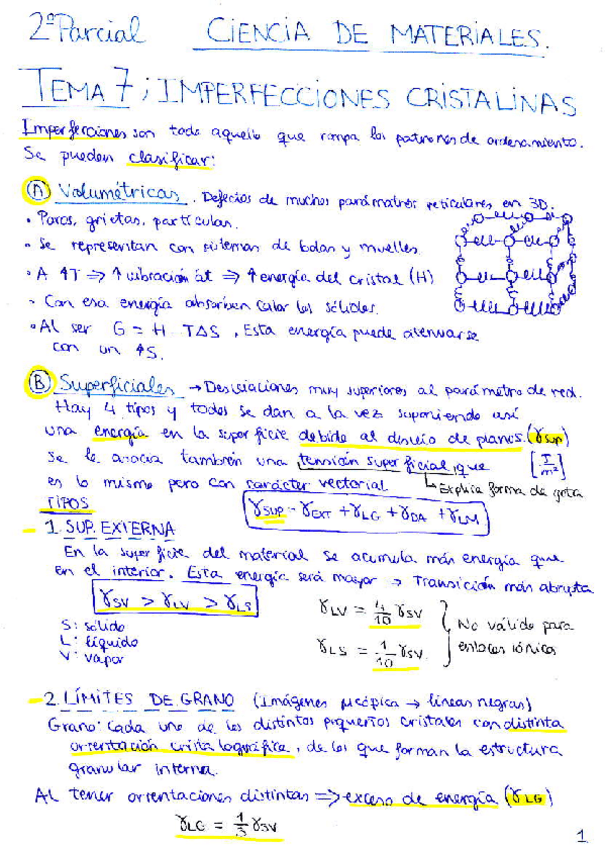 2º Parcial CIENCIA DE MATERIALES.
TEMA 7; IMPERFECCIONES CRISTALINAS
Imperfecciones son todo aquello que rompa los patrones de ordenamiento.
Se pueden clasificar:
(A) Volumétricas. Defectos de muchos parámetros reticulares en 3D.
• Poros, grietas, partículas.
• Se representan con sistemas de bolas y muelles.
• A ↑T ⇒ ↑vibración át ⇒ ↑energía del cristal (H)
- Con esa energía absorben calor los sólidos.
• Al ser G = H - TΔS, Esta energía puede atenuarse
con un ↑S.
(B) Superficiales → Desviaciones muy superiores al parámetro de red.
Hay 4 tipos y todos se dan a la vez suponiendo así
una energía en la superficie debido al desvío de planos. (γsup)
Se le asocia también una tensión superficial, que [J/m²]
es lo mismo pero con carácter vectorial ↳ Explica forma de gota
TIPOS γSUP = γEXT + γLG + γDA + γLM
- 1. SUP. EXTERNA
En la superficie del material se acumula más energía que
en el interior. Esta energía será mayor → Transición más abrupta
γSV > γLV > γLS
S: sólido
L: líquido
V: vapor
γLV = 4/10 γSV
γLS = 1/10 γSV
No válido para
enlaces iónicos
- 2. LÍMITES DE GRANO (Imágenes μcópica → líneas negras)
Grano: Cada uno de los distintos pequeños cristales con distinta
orientación cristalográfica, de los que forman la estructura
granular interna.
Al tener orientaciones distintas ⇒ exceso de energía (γLG)
γLG = 1/3 γSV
1